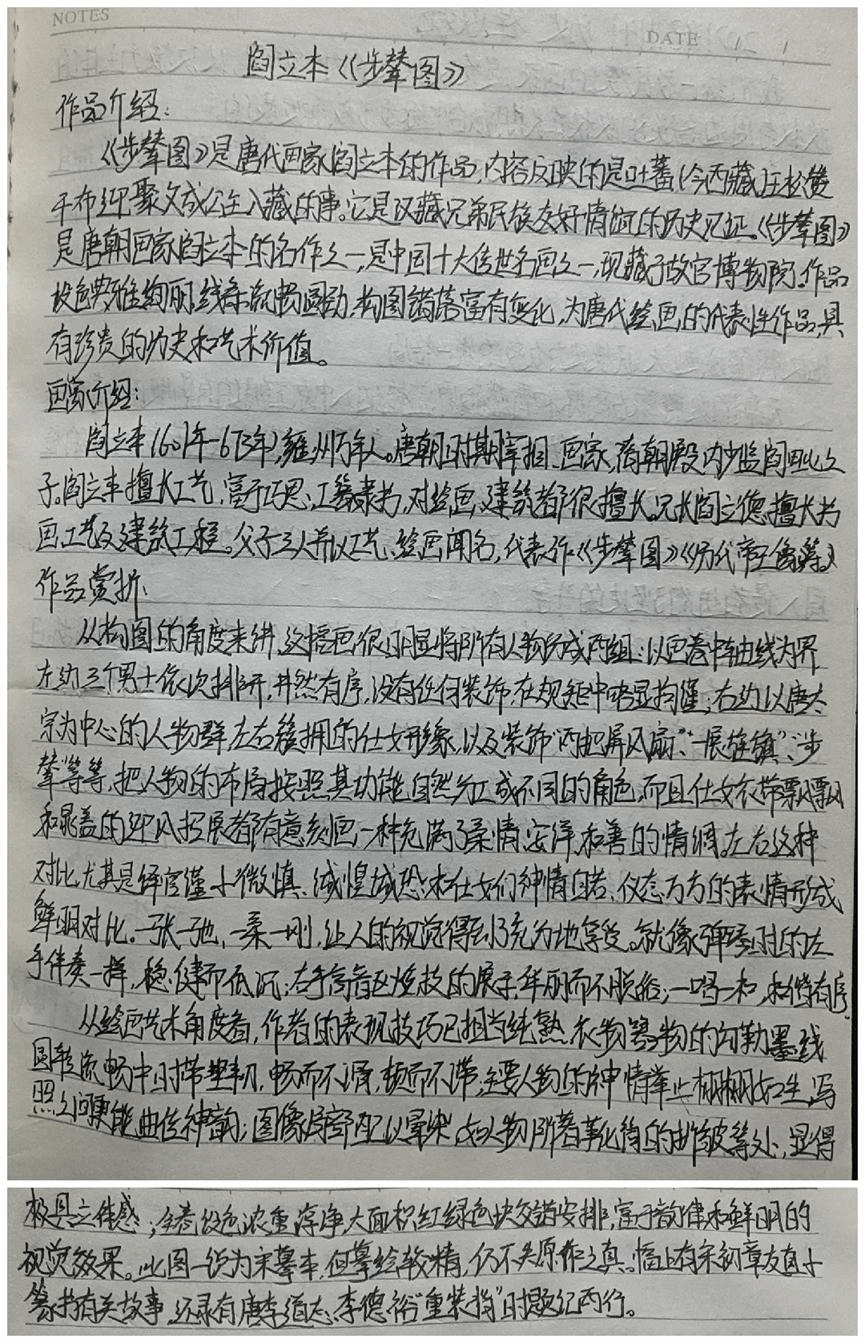 NOTES
DATE
阎立本《步辇图》
作品介绍:
《步辇图》是唐代画家阎立本的作品,内容反映的是吐蕃(今西藏)王松赞
干布迎娶文成公主入藏的事。它是汉藏兄弟民族友好情谊的历史见证。《步辇图》
是唐朝画家阎立本的名作之一,是中国十大传世名画之一,现藏于故宫博物院。作品
设色典雅绚丽,线条流畅圆劲,构图错落富有变化,为唐代绘画的代表性作品,具
有珍贵的历史和艺术价值。
画家介绍:
阎立本(601年-673年),雍州万年人。唐朝时期宰相、画家,隋朝殿内少监阎毗之
子。阎立本擅长工艺,富于巧思,工篆隶书,对绘画、建筑都很擅长。兄长阎立德擅长书
画工艺及建筑工程。父子三人并以工艺、绘画闻名,代表作《步辇图》《历代帝王像等》
作品赏析:
从构图的角度来讲,这幅画很明显将所有人物分成两组:以画卷中轴线为界
左边三个男士依次排开,井然有序,没有任何装饰,在规矩中略显拘谨;右边以唐太
宗为中心的人物群,左右簇拥的仕女形象,以及装饰“两把屏风扇”、“一展旌旗”、“步
辇”等等,把人物的布局按照其功能自然分工成不同的角色,而且仕女衣带飘飘
和晃盖的迎风招展都有意刻画一种充满了柔情、安详、和善的情绸。左右这种
对比,尤其是译官谨小微慎、诚惶诚恐和仕女们神情自若、仪态万方的表情形成
鲜明对比。一张一弛,一柔一刚,让人的视觉得到了充分地享受。就像弹琴时的左
手伴奏一样,稳健而低沉;右手高音区炫技的展示,华丽而不脱俗;一唱一和,和谐有序。
从绘画艺术角度看,作者的表现技巧已相当纯熟。衣物等物的勾勒墨线
圆转流畅中时带坚韧,畅而不滑,顿而不滞;主要人物的神情举止栩栩如生,写
照之间更能曲传神韵;图像局部配以晕染,如人物所着靴筒的褶皱等处,显得
极具立体感;全卷设色浓重淳净,大面积红绿色块交错安排,富于韵律和鲜明的
视觉效果。此图一说为宋摹本,但摹绘较精,仍不失原作之真。幅上有宋初章友直小
篆书有关故事,还录有唐李道志、李德裕“重装背”时题记两行。